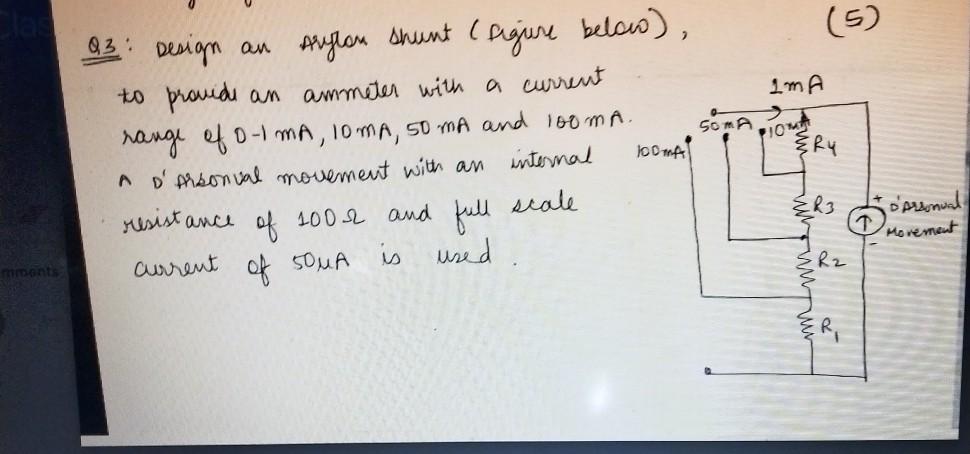 Q3: Design an Aryton shunt (figure below), (5)
to provide an ammeter with a current
range of 0-1 mA, 10 mA, 50 mA and 100 mA.
A D'Arsonval movement with an internal
resistance of 100 Ω and full scale
current of 50 μA is used.
1mA
50mA
10mA
100mA
R4
R3
+ D'Arsonval
Movement
-
R2
R1
mments